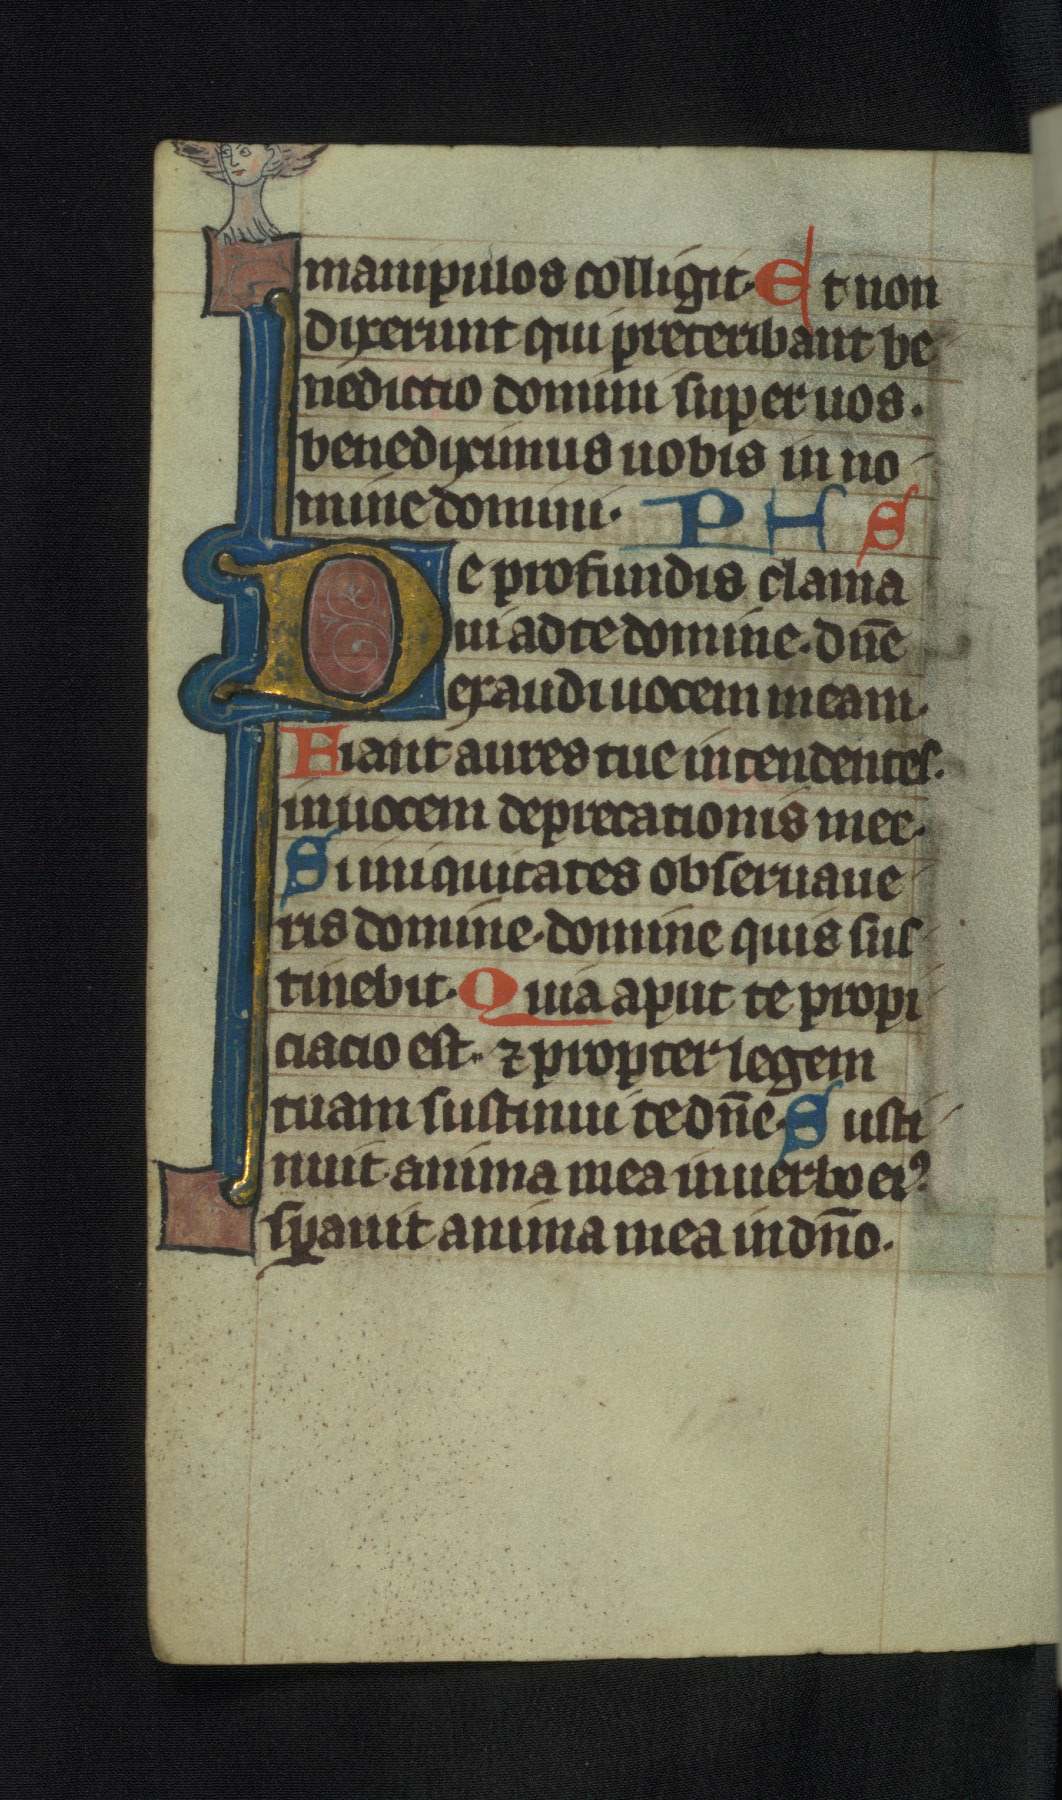 manipulos colligit. Et non
dixerunt qui preteribant be
nedictio domini super uos.
benediximus uobis in no
mine domini. PHS
De profundis clama
ui ad te domine. dn̄e
exaudi uocem meam.
Fiant aures tue intendentes.
in uocem deprecationis mee.
Si iniquitates obseruaue
ris domine. domine quis sus
tinebit. Quia aput te propi
ciacio est. ⁊ propter legem
tuam sustinui te dn̄e. Susti
nuit anima mea in uerbo eiꝰ
sꝑauit anima mea in dn̄o.